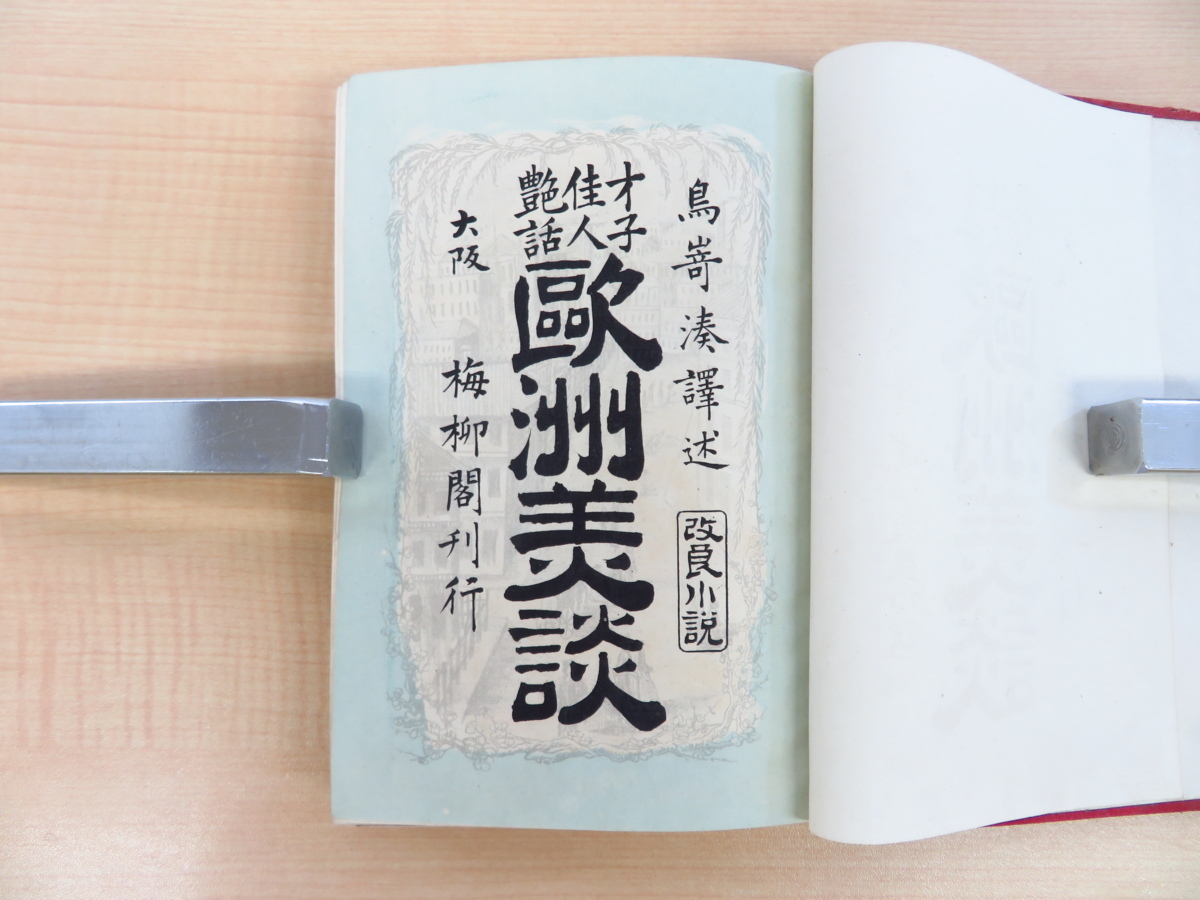 鳥嵜湊譯述
改良小説
才子
佳人
艶話
歐洲美談
大阪
梅柳閣刊行